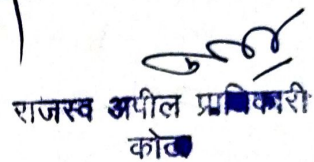 राजस्व अपील प्राधिकारी
कोटा